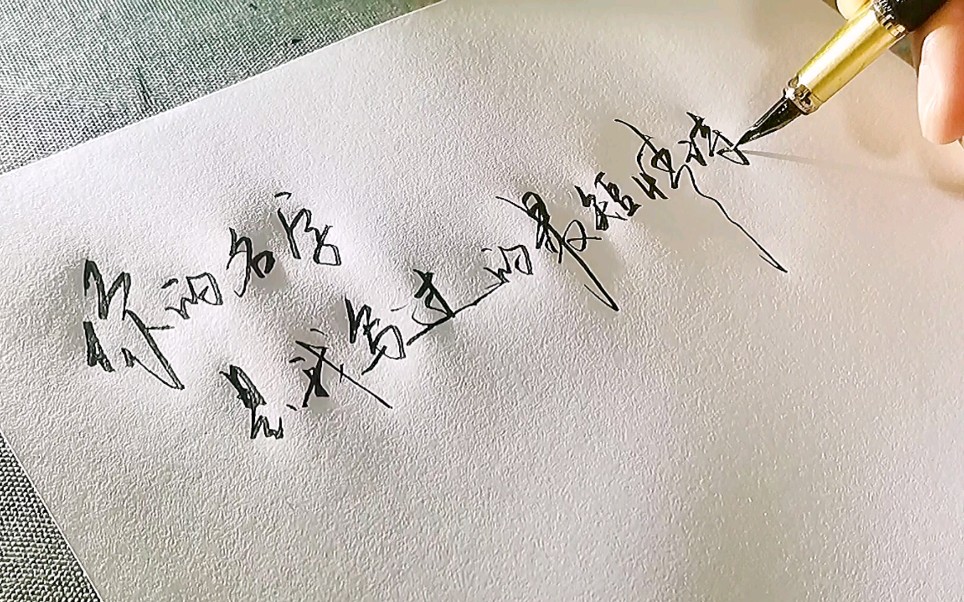 你的名字
是我写过的最短情诗